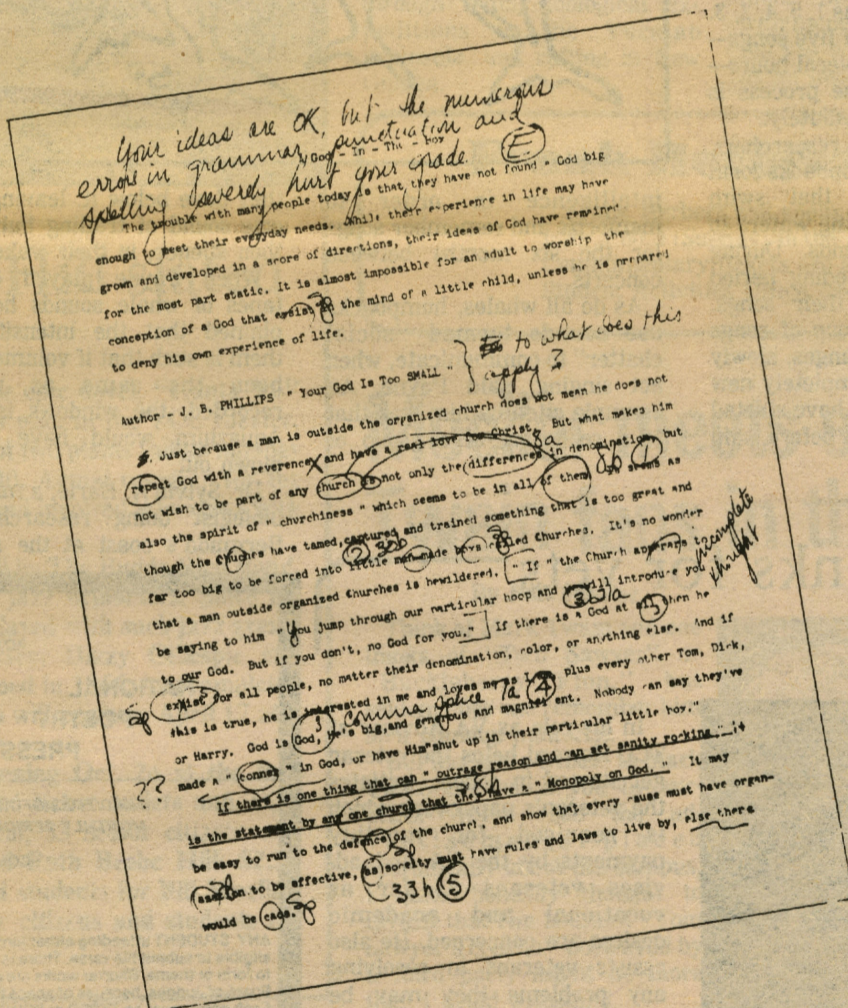 Your ideas are OK, but the numerous
errors in grammar, punctuation and
spelling severely hurt your grade. E
God - In - The - Box
The trouble with many people today is that they have not found a God big
enough to meet their everyday needs. While their experience in life may have
grown and developed in a score of directions, their ideas of God have remained
for the most part static. It is almost impossible for an adult to worship the
conception of a God that exsist in the mind of a little child, unless he is prepared
sp
to deny his own experience of life.
Author - J. B. PHILLIPS " Your God Is Too SMALL "
to what does this
apply?
Just because a man is outside the organized church does not mean he does not
repect God with a reverence, and have a real love for Christ. But what makes him
8a
not wish to be part of any church is not only the differences in denomination, but
8b 1
also the spirit of " churchiness " which seems to be in all of them. It seems as
though the Chuches have tamed, captured and trained something that is too great and
2 30b sp
far too big to be forced into little manmade boxs called Churches. It's no wonder
that a man outside organized Churches is bewildered. " If " the Church appears to
incomplete
thought
be saying to him "You jump through our particular hoop and we will introduce you
3 31a
to our God. But if you don't, no God for you." If there is a God at all then he
sp
exsist for all people, no matter their denomination, color, or anything else. And if
this is true, he is interested in me and loves me as I am plus every other Tom, Dick,
comma splice 7a 4
or Harry. God is God, He's big, and generous and magnificent. Nobody can say they've
??
made a " connex " in God, or have Him "shut up in their particular little box."
If there is one thing that can " outrage reason and can set sanity rocking." it
8b
is the statement by any one church that they have a " Monopoly on God. " It may
be easy to run to the defence of the church, and show that every cause must have organ-
sp sp
asation to be effective, as soceity must have rules and laws to live by, else there
33h 5
would be caos. sp